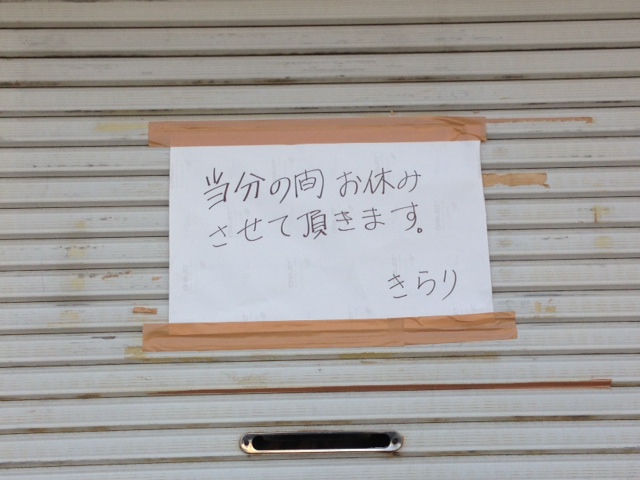 当分の間 お休み
させて頂きます。
きらり